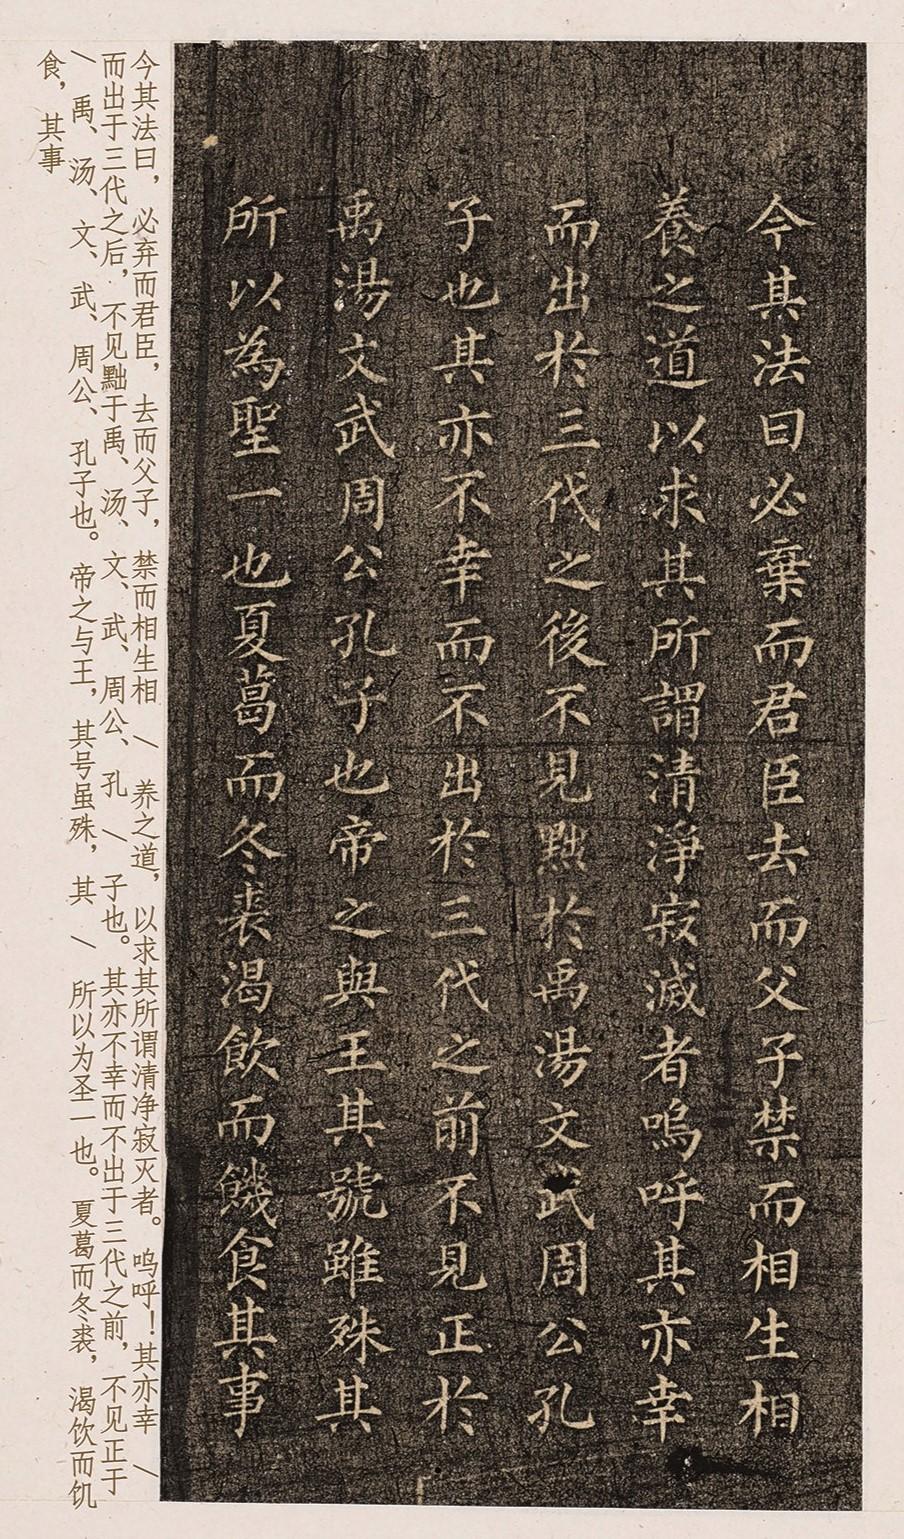 今其法曰必棄而君臣去而父子禁而相生相
養之道以求其所謂清淨寂滅者嗚呼其亦幸
而出於三代之後不見黜於禹湯文武周公孔
子也其亦不幸而不出於三代之前不見正於
禹湯文武周公孔子也帝之與王其號雖殊其
所以為聖一也夏葛而冬裘渴飲而饑食其事
今其法曰，必弃而君臣，去而父子，禁而相生相 / 养之道，以求其所谓清净寂灭者。呜呼！其亦幸 /
而出于三代之后，不见黜于禹、汤、文、武、周公、孔 / 子也。其亦不幸而不出于三代之前，不见正于
/ 禹、汤、文、武、周公、孔子也。帝之与王，其号虽殊，其 / 所以为圣一也。夏葛而冬裘，渴饮而饥
食，其事